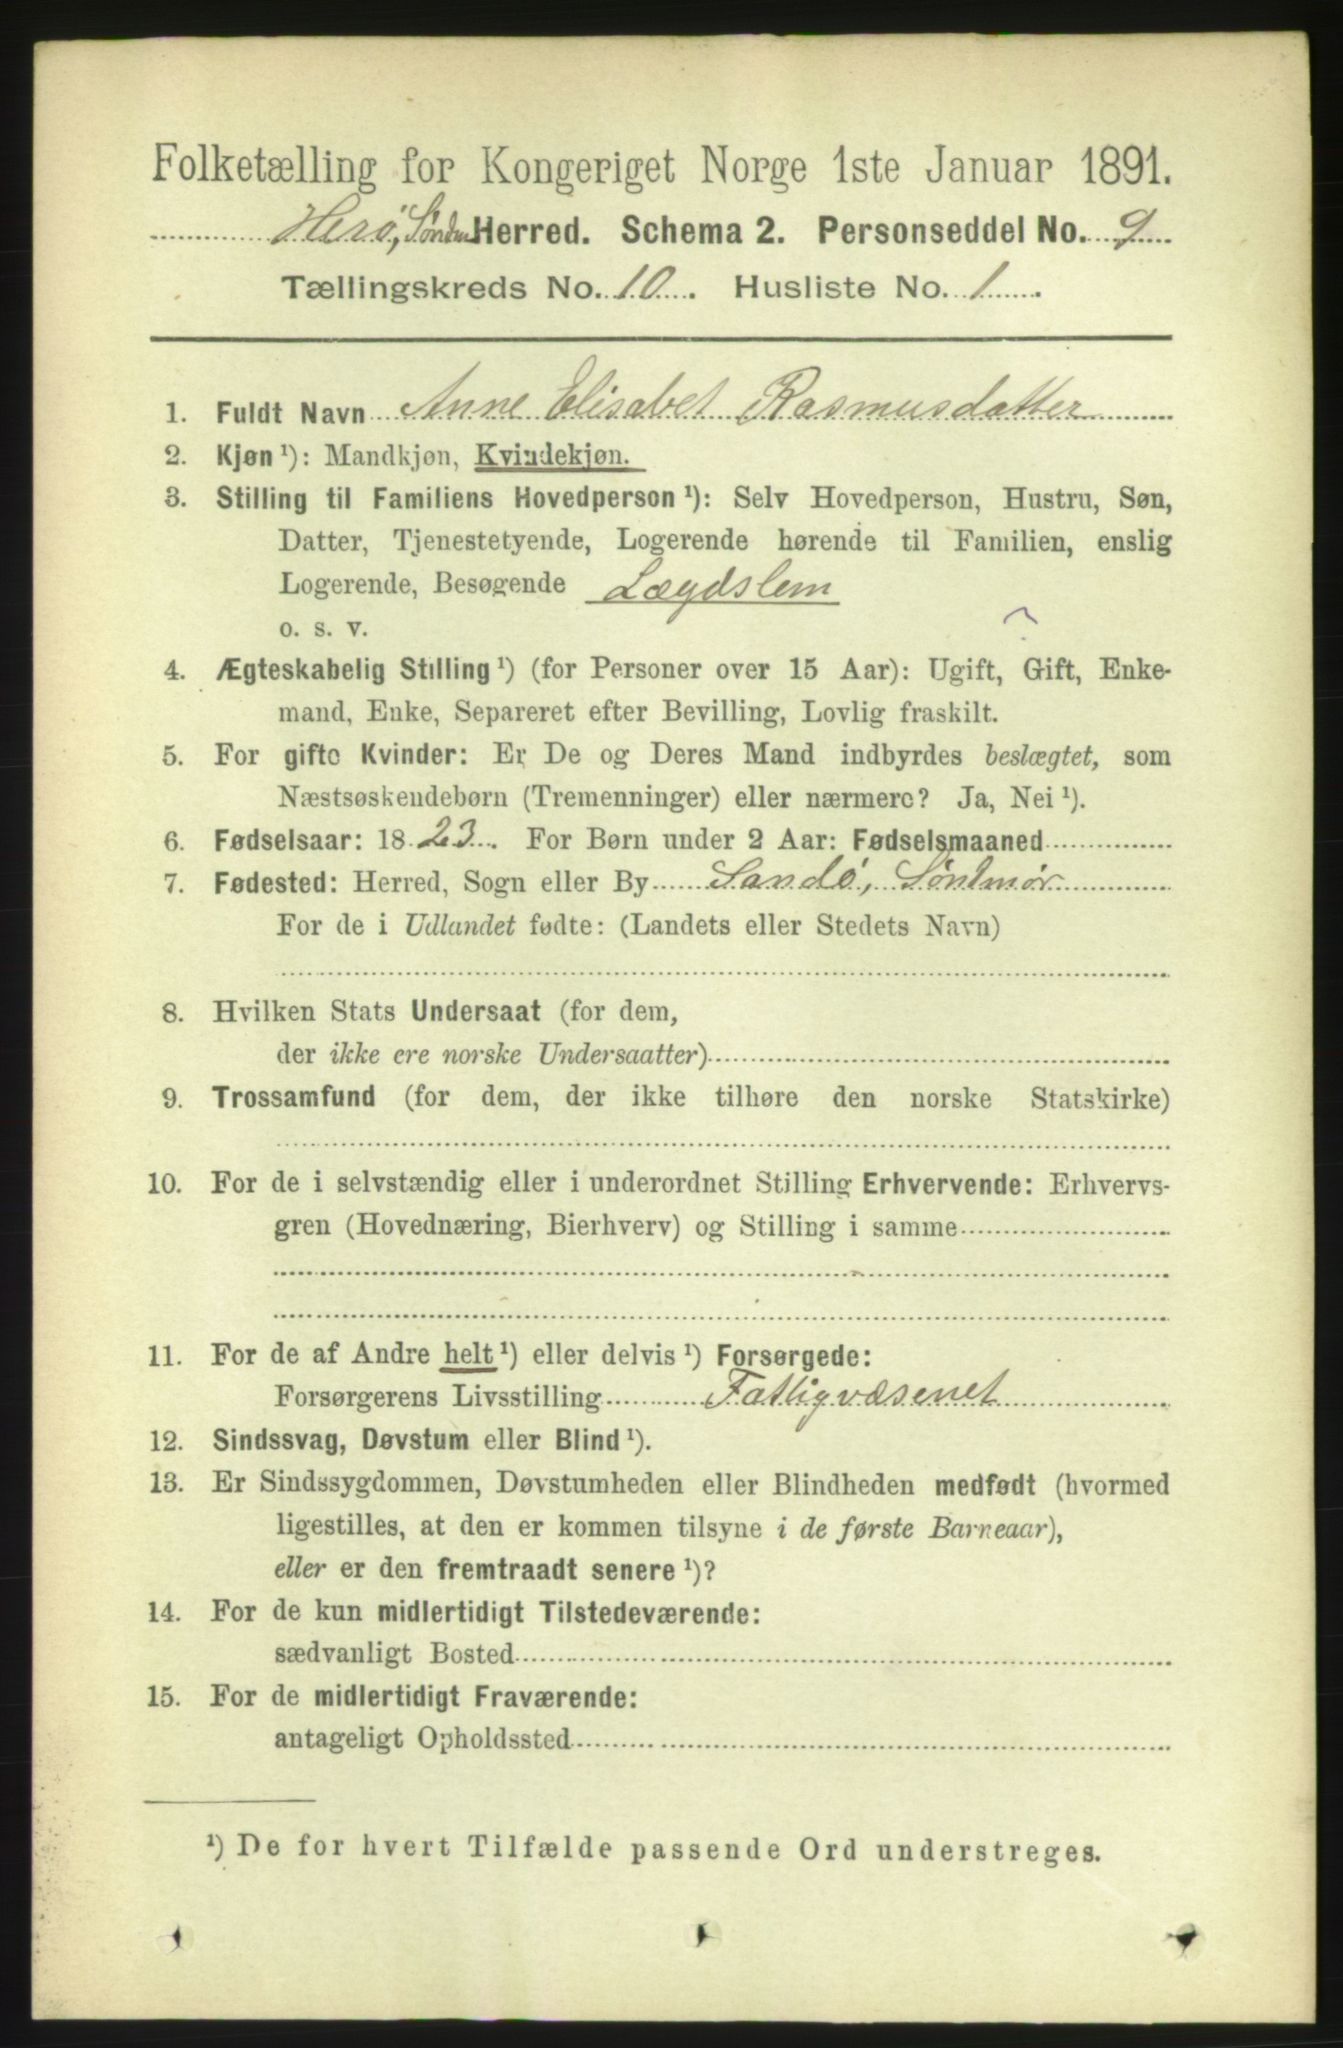 Folketælling for Kongeriget Norge 1ste Januar 1891.
Herö, Söndm Herred. Schema 2. Personseddel No. 9
Tællingskreds No. 10. Husliste No. 1.
1. Fuldt Navn Anne Elisabet Rasmusdatter
2. Kjøn ¹): Mandkjøn, Kvindekjøn.
3. Stilling til Familiens Hovedperson ¹): Selv Hovedperson, Hustru, Søn,
Datter, Tjenestetyende, Logerende hørende til Familien, enslig
Logerende, Besøgende Lægdslem
o. s. v.
?
4. Ægteskabelig Stilling ¹) (for Personer over 15 Aar): Ugift, Gift, Enke-
mand, Enke, Separeret efter Bevilling, Lovlig fraskilt.
5. For gifte Kvinder: Er De og Deres Mand indbyrdes beslægtet, som
Næstsøskendebørn (Tremenninger) eller nærmere? Ja, Nei ¹).
6. Fødselsaar: 18 23. For Børn under 2 Aar: Fødselsmaaned
7. Fødested: Herred, Sogn eller By Sandö, Söndmör
For de i Udlandet fødte: (Landets eller Stedets Navn)
8. Hvilken Stats Undersaat (for dem,
der ikke ere norske Undersaatter)
9. Trossamfund (for dem, der ikke tilhøre den norske Statskirke)
10. For de i selvstændig eller i underordnet Stilling Erhvervende: Erhvervs-
gren (Hovednæring, Bierhverv) og Stilling i samme
11. For de af Andre helt ¹) eller delvis ¹) Forsørgede:
Forsørgerens Livsstilling Fattigvæsenet
12. Sindssvag, Døvstum eller Blind ¹).
13. Er Sindssygdommen, Døvstumheden eller Blindheden medfødt (hvormed
ligestilles, at den er kommen tilsyne i de første Barneaar),
eller er den fremtraadt senere ¹)?
14. For de kun midlertidigt Tilstedeværende:
sædvanligt Bosted
15. For de midlertidigt Fraværende:
antageligt Opholdssted
¹) De for hvert Tilfælde passende Ord understreges.